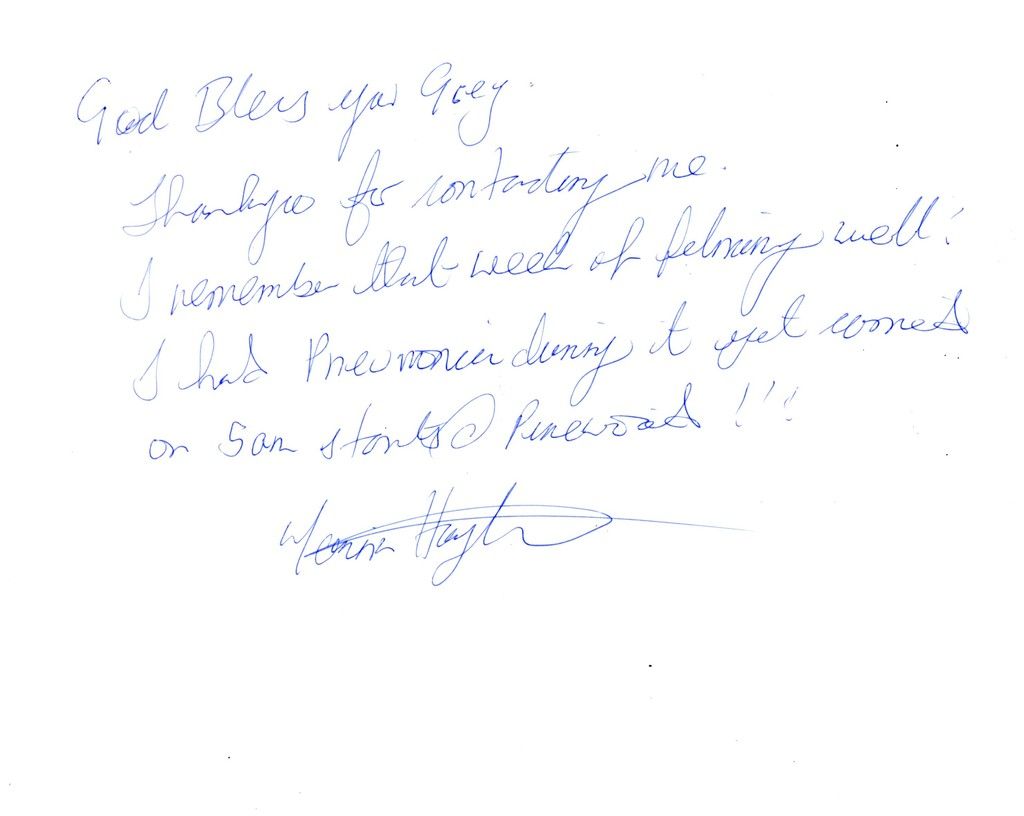 God Bless you Grey.
Thankyou for contacting me.
I remember that week of filming well!
I had Pneumonia during it yet worked
on 5am starts @ Pinewood !!!